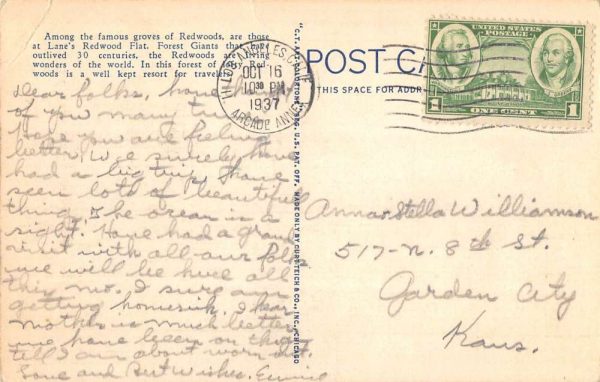 Among the famous groves of Redwoods, are those
at Lane's Redwood Flat. Forest Giants that have
outlived 30 centuries, the Redwoods are living
wonders of the world. In this forest of Red-
woods is a well kept resort for travelers
Dear folks, have
of you many
hope you are feeling
better. We surely have
had a big trip, have
seen lots of beautiful
things, the ocean is a
sight. Have had a grand
visit with all our folks
we will be here all
this mo. I sure am
getting homesick. I hear
mother is much better
we have been on the go
till I am about worn out.
Love and Best Wishes.
LOS ANGELES, CALIF.
OCT 16
10 30 PM
1937
ARCADE ANNEX
"C.T. ART-COLORTONE" REG. U.S. PAT. OFF. MADE ONLY BY CURT TEICH & CO., INC., CHICAGO
POST CARD
THIS SPACE FOR ADDR
UNITED STATES
POSTAGE
1 ONE CENT 1
Anna & Stella Williamson
517-N. 8th St.
Garden City
Kans.